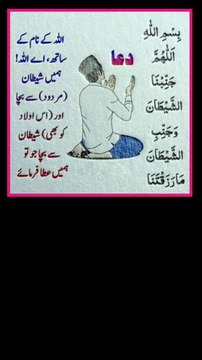 بِسْمِ اللهِ
اَللّٰهُمَّ
جَنِّبْنَا
الشَّيْطَانَ
وَجَنِّبِ
الشَّيْطَانَ
مَا رَزَقْتَنَا
دعا
اللہ کے نام کے
ساتھ، اے اللہ!
ہمیں شیطان
(مردود) سے بچا
اور (اس اولاد
کو بھی) شیطان
سے بچا جو تو
ہمیں عطا فرمائے